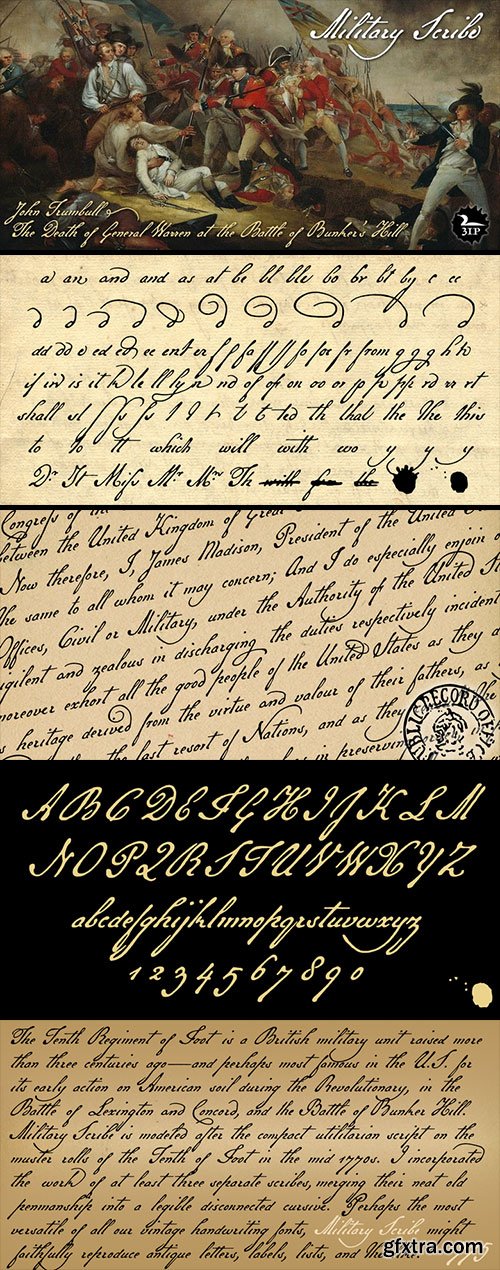 Military Scribe
John Trumbull
The Death of General Warren at the Battle of Bunker's Hill
3IP
a an and and as at be bl ble bo br bt by c cc
shall st
to to tt which will with wo y y y
Dr. It Miſs Mr. Mrs. Th will for the
Congress of the
between the United Kingdom of Great
Now therefore, I, James Madison, President of the United
the same to all whom it may concern; And I do especially enjoin o
Offices, Civil or Military, under the Authority of the United St
igilent and zealous in discharging the duties respectively incident
moreover exhort all the good people of the United States as they
s heritage derived from the virtue and valour of their fathers, as
the last resort of Nations, and as they
in preserving
PUBLIC RECORD OFFICE
A B C D E F G H I J K L M
N O P Q R S T U V W X Y Z
abcdefghijklmnopqrstuvwxyz
1 2 3 4 5 6 7 8 9 0
The Tenth Regiment of Foot is a British military unit raised more
than three centuries ago—and perhaps most famous in the U.S. for
its early action on American soil during the Revolutionary, in the
Battle of Lexington and Concord, and the Battle of Bunker Hill.
Military Scribe is modeled after the compact utilitarian script on the
muster rolls of the Tenth of Foot in the mid 1770s. I incorporated
the work of at least three separate scribes, merging their neat old
penmanship into a legible disconnected cursive. Perhaps the most
versatile of all our vintage handwriting fonts, Military Scribe might
faithfully reproduce antique letters, labels, lists, and the like.
1775
gfxtra.com